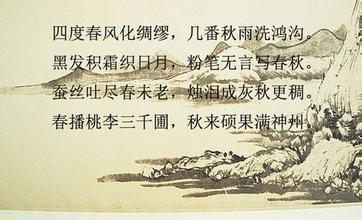 四度春风化绸缪，几番秋雨洗鸿沟。
黑发积霜织日月，粉笔无言写春秋。
蚕丝吐尽春未老，烛泪成灰秋更稠。
春播桃李三千圃，秋来硕果满神州。